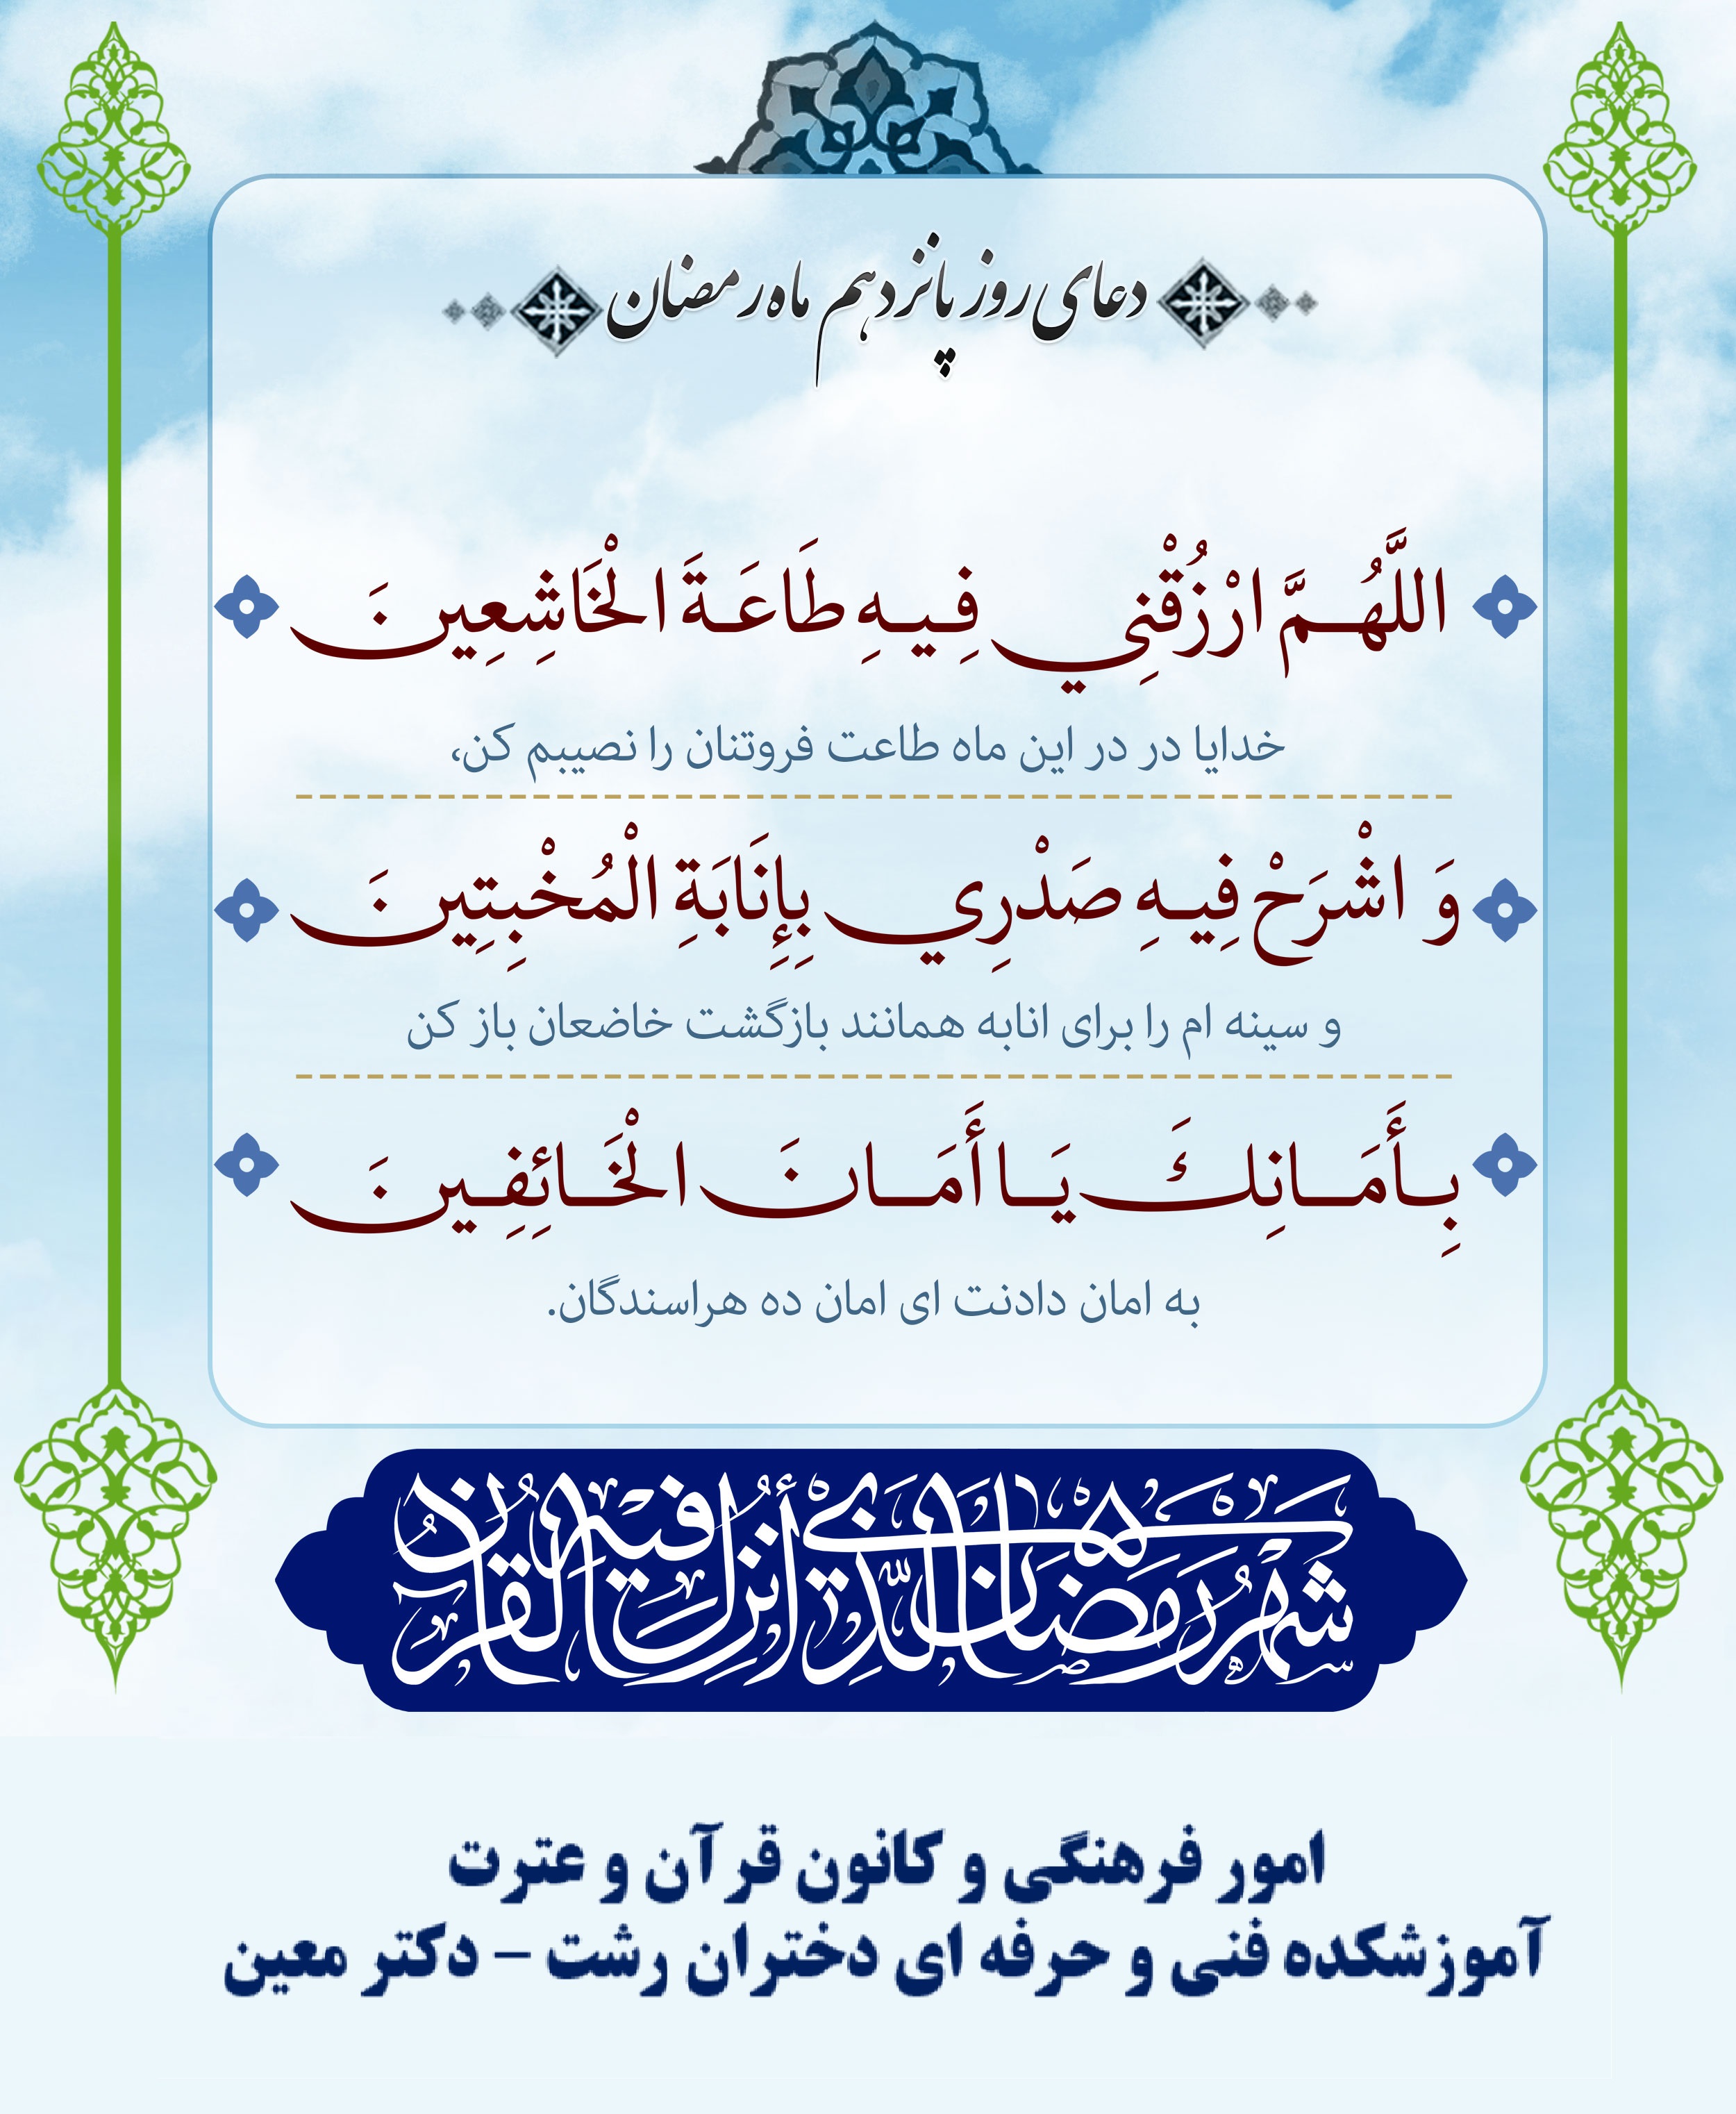 دعای روز پانزدهم ماه رمضان
اللَّهُمَّ ارْزُقْنِي فِيهِ طَاعَةَ الْخَاشِعِينَ
خدایا در در این ماه طاعت فروتنان را نصیبم کن،
وَ اشْرَحْ فِيهِ صَدْرِي بِإِنَابَةِ الْمُخْبِتِينَ
و سینه ام را برای انابه همانند بازگشت خاضعان باز کن
بِأَمَانِكَ يَا أَمَانَ الْخَائِفِينَ
به امان دادنت ای امان ده هراسندگان.
شهر رمضان الذي أنزل فيه القرآن
امور فرهنگی و کانون قرآن و عترت
آموزشکده فنی و حرفه ای دختران رشت – دکتر معین